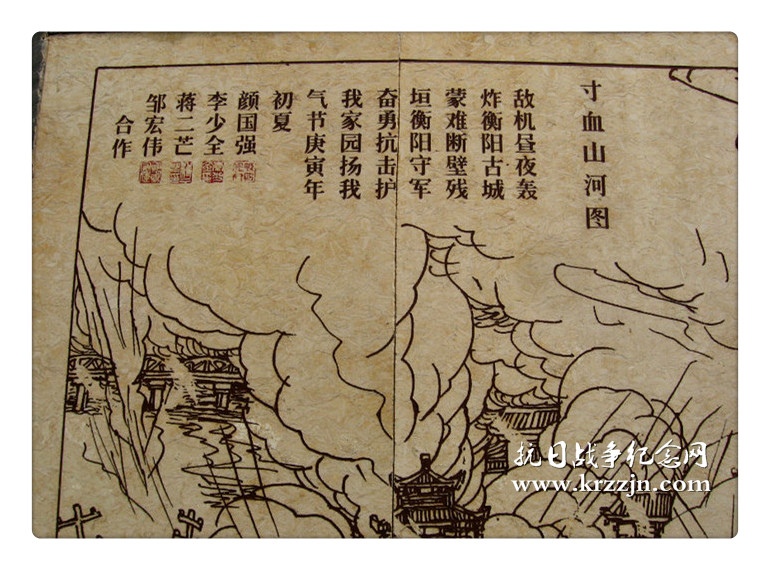 寸血山河图
敌机昼夜轰
炸衡阳古城
蒙难断壁残
垣衡阳守军
奋勇抗击护
我家园扬我
气节庚寅年
初夏
颜国强
李少全
蒋二芒
邹宏伟
合作
抗日战争纪念网
www.krzzjn.com